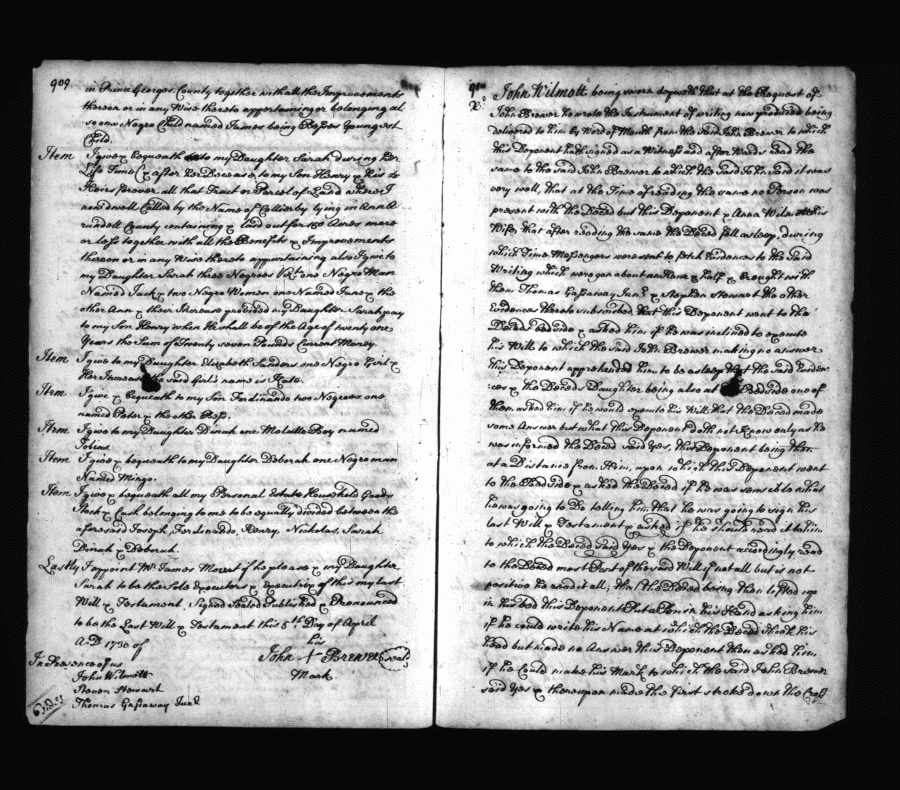 909
in Prince Georges County together with all the Improvements
thereon or in any Wise thereto appertaining or belonging al
so one Negro Child named James being Besses Youngest
Child.
Item I give & bequeath unto my Daughter Sarah during her
Life Time & after her Decease to my Son Henry & his
Heirs forever all that Tract or Parcel of Land where I
now dwell Called by the Name of Collierby lying in Ann A
rundell County containing & laid out for Acres more
or less together with all the Benefits & Improvements
thereon or in any Wise thereto appurtaining also I give to
my Daughter Sarah three Negroes Viz.t one Negro Man
Named Jack & two Negro Women one Named Jane & the
other Ann & their Increase provided my Daughter Sarah pay
to my Son Henry when He shall be of the Age of twenty one
Years the Sum of Twenty seven Pounds Current Money.
Item I give to my Daughter Elizabeth Sanders one Negro Girl &
Her Increase the said Girl's name is Kate.
Item I give & bequeath to my Son Ferdinando two Negroes one
named Peter & the other Bess.
Item I give to my Daughter Dinah one Molatto Boy named
Tobias.
Item I give & bequeath to my Daughter Deborah one Negro man
Named Mingo.
Item I give & bequeath all my Personal Estate Household Goods
Stock & Cash belonging to me to be equally divided between the
aforesaid Joseph, Ferdinando, Henry, Nicholas, Sarah
Dinah & Deborah.
Lastly I appoint Mr James Mouat if he please & my Daughter
Sarah to be the Sole Executors & Executrix of this my last
Will & Testament. Signed Sealed Published & Pronounced
to be the Last Will & Testament this 5th Day of April
A.D. 1730 of
his
John + Brewer (seal)
Mark
In Presence of us
John Wilmott
Steven Stewart
Thomas Gassaway Junr
6 sides
910
John Wilmott being sworn deposeth that at the Request of
John Brewer he wrote the Instrument of writing now produced being
delivered to him by Word of Mouth from the said John Brewer to which
this Deponent hath signed as a Witness and afterwards read the
same to the Said John Brewer to which the Said John Said it was
very well, that at the Time of reading the same no Person was
present with the Deced but this Deponent & Anna Wilmott his
Wife, that after reading the same the Deced fell asleep, during
which Time Messengers were sent to fetch Evidences to the Said
Writing which were gon about an Hour & half & brought with
them Thomas Gassaway Junr & Stephen Stewart the other
Evidences thereto subscribed that this Deponent went to the
Deceds bedside & asked him if he was inclined to execute
his Will to which the said John Brewer making no answer
this Deponent apprehended him to be asleep that the said Eviden
:ces & the Deceds Daughter being also at Bedside one of
them asked him if he would execute his Will; that the Deced made
some Answer but what this Deponent doth not Know only as he
was informed the Deced said Yes, this Deponent being then
at a Distance from Him, upon which this Deponent went
to the Bedside & asked the Deced if he was sensible what
he was going to Do telling him that he was going to sign his
last Will & Testament & asked if he should read it to him
to which the Deced Said Yes & the Deponent accordingly read
to the Deced most Part of the said Will if not all but is not
positive he read it all; that the Deced being then lifted up
in his bed this Deponent Put a Pen in his Hand asking him
if he could write his Name at which the Deced Shook his
head but made no Answer this Deponent then asked him
if he Could make his Mark to which the said John Brewer
said Yes & thereupon made the first stroke down the Cross